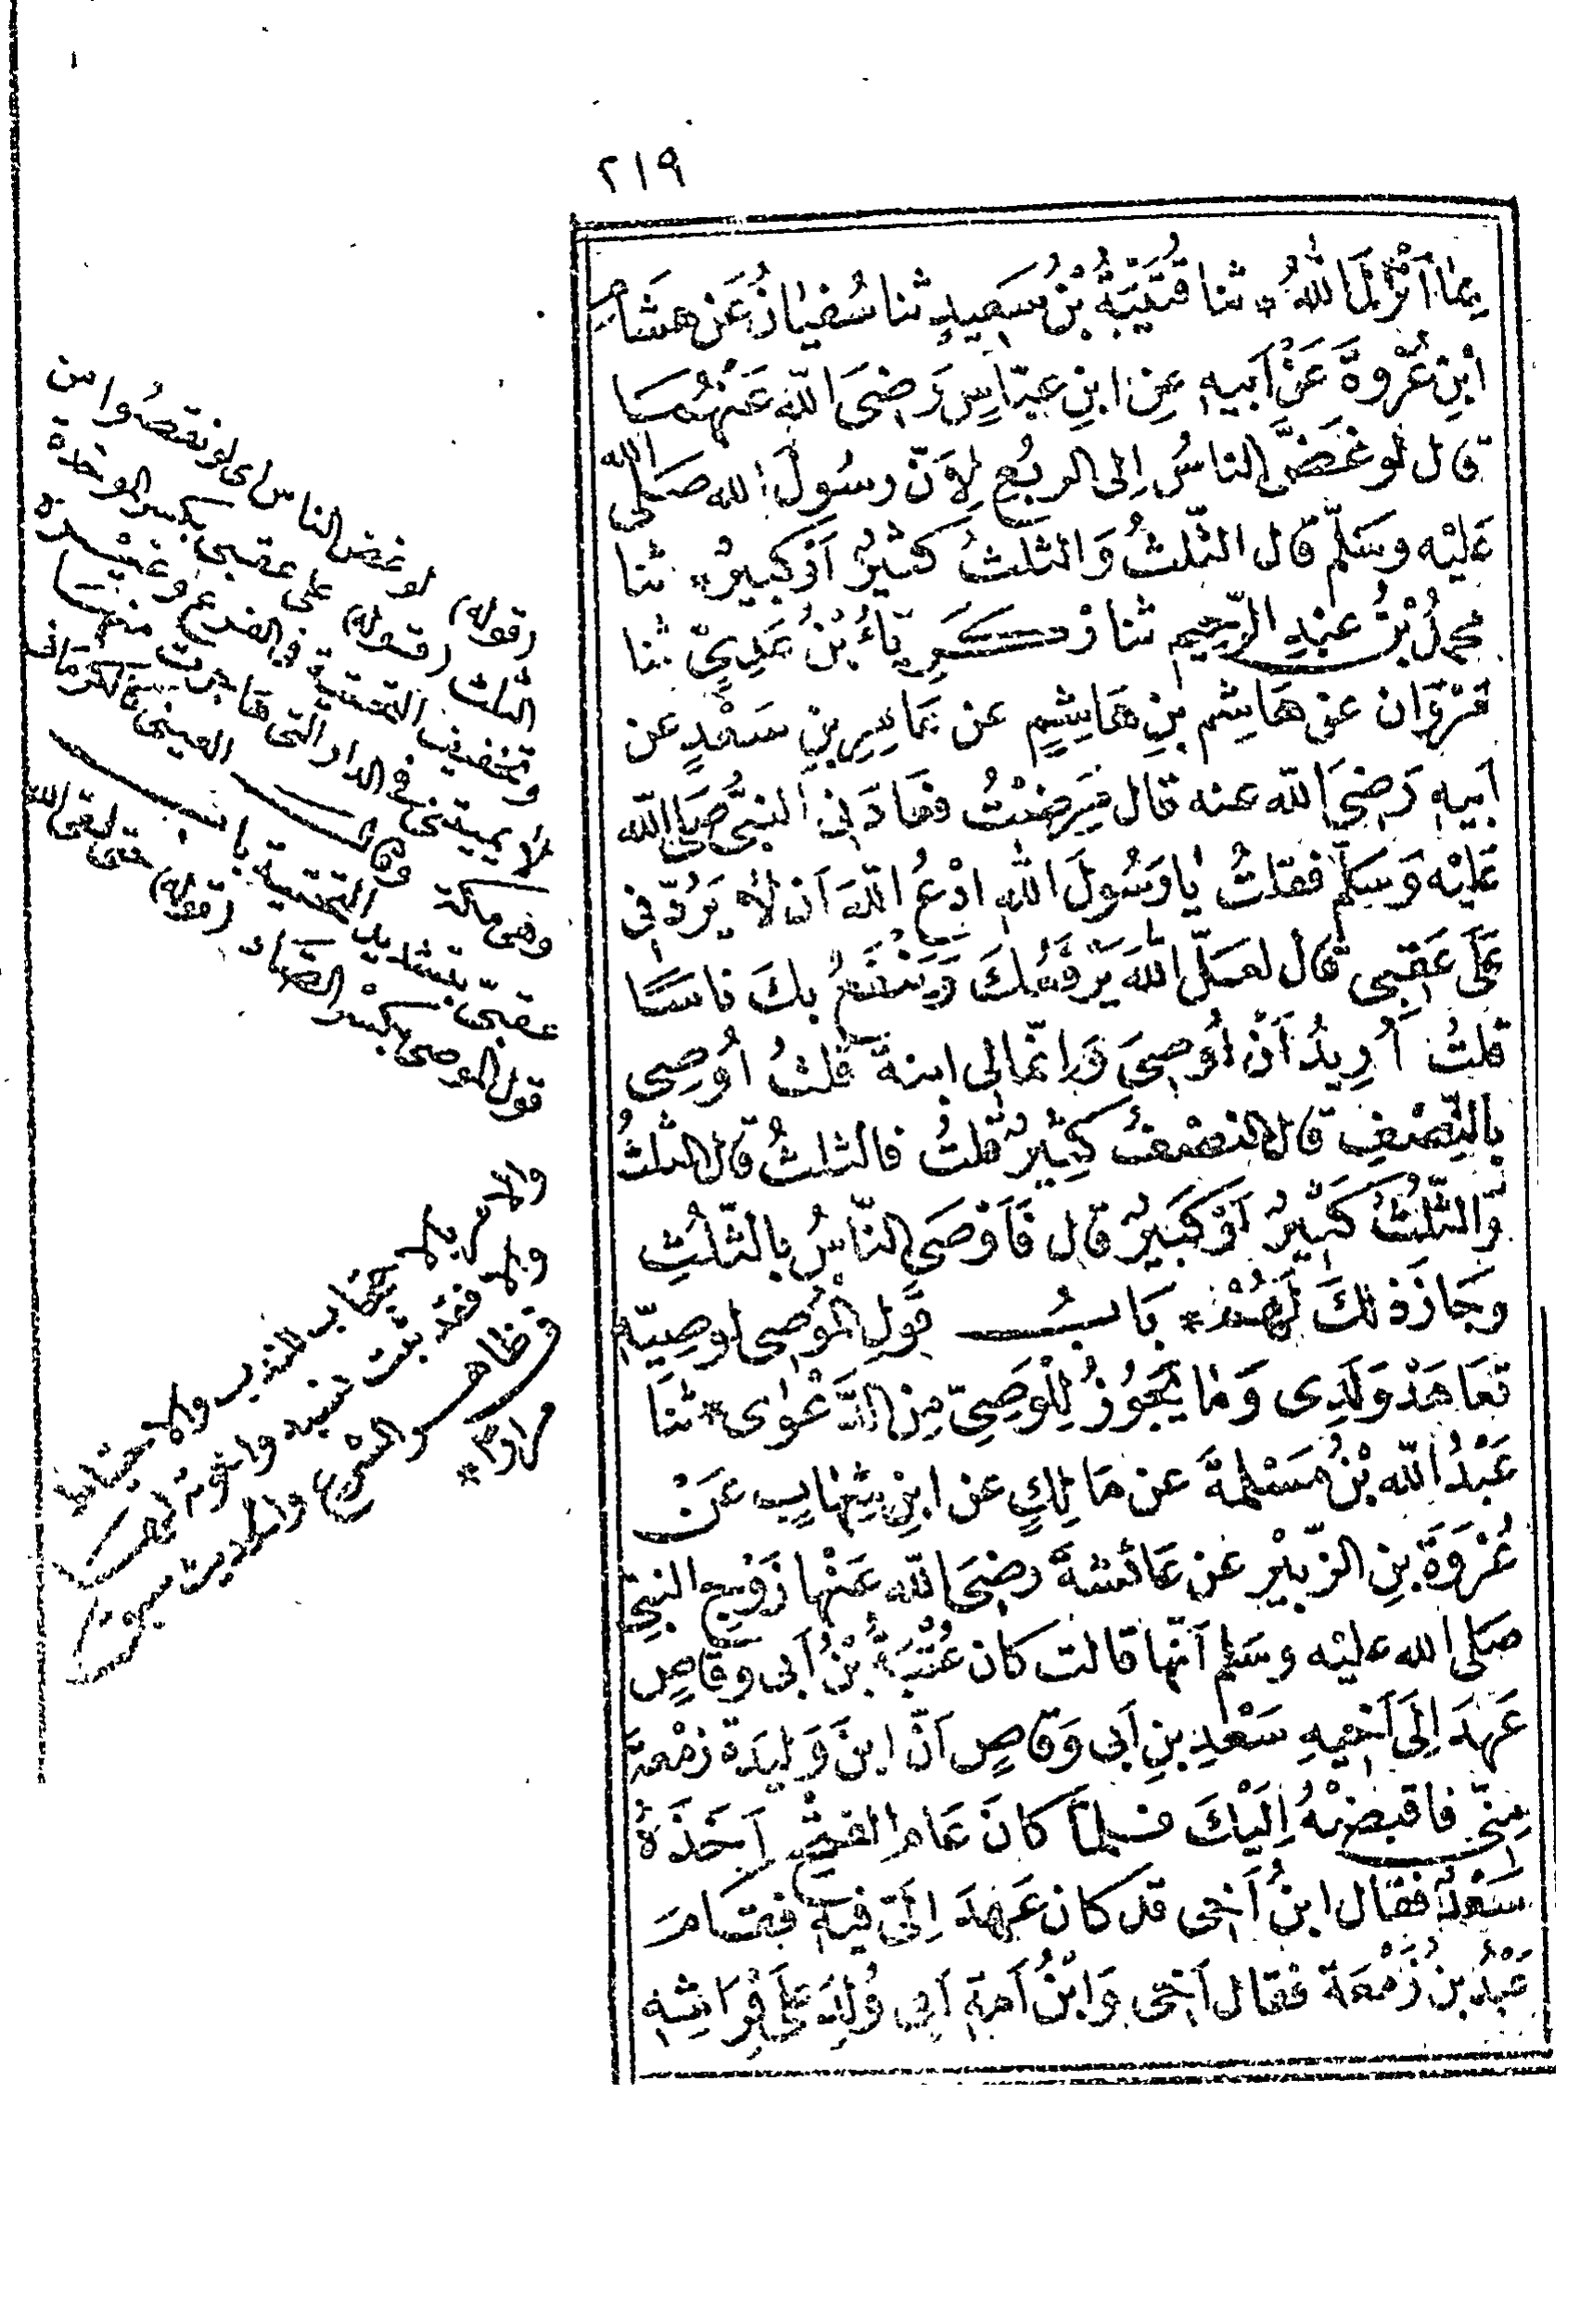 ٢١٩
بِمَا اَنْزَلَ اللهُ * ثنا قُتَيْبَةُ بْنُ سَعِيدٍ ثنا سُفْيٰانُ عَنْ هِشَامِ
ابْنِ عُرْوَةَ عَنْ اَبيهِ عِنِ ابنِ عبّاسٍ رَضِىَ اللّه عَنْهُمَا
قال لو غَضَّ الناسُ اِلى الربُعِ لِاَنّ رسُولَ الله صَلى الله
عَليْه وسَلّم قال الثّلثُ وَالثلثُ كثيرٌ اَوْ كبيرٌ * ثنا
محمدُ بْنُ عبْدِ الرّحيم ثنا زكَرِيّاءُ بْنُ عَدِىٍّ ثنا
مَرْوَان عن هَاشِم بنِ هَاشِمٍ عن عَامِرِ بنِ سَعْدٍ عن
اَبيهِ رَضِىَ اللّه عنه قال مَرِضْتُ فعَادَنى النبىُّ صَلى اللّه
عَليْه وَسَلّم فقلتُ يا رَسُولَ اللّهِ ادْعُ اللّهَ اَن لاٰ يَرُدّنِى
عَلَى عَقِبِى قال لعَلّ اللّهَ يَرْفَعُكَ وَيَنْفَعُ بكَ ناسًا
قلتُ اُرِيدُ اَنْ اُوصِىَ وَاِنّما لِى ابنة قلتُ اُوصِى
بالنِّصْفِ قال النصْفُ كثِيرٌ قلتُ فالثلثُ قال الثلثُ
وَالثّلثُ كَثِيرٌ اَوْ كَبيرٌ قال فَاَوْصَى النّاسُ بالثّلُثِ
وجَازَ ذٰلكَ لَهُمْ * بَابُ قَولِ المُوصِى لوصِيّهِ
تعَاهَدْ وَلَدِى وَمَا يَجُوزُ لِلْوَصِىّ مِنَ الدَّعْوٰى * ثنَا
عَبْدُ اللّه بْنُ مَسْلمةَ عن مَالِكٍ عن ابنِ شِهٰابٍ عَنْ
عُرْوَةَ بنِ الزّبيْرِ عن عَائشةَ رضِىَ اللّه عَنْها زَوْجِ النبىّ
صَلى الله عليْه وسَلم اَنّها قالت كان عُتْبَةُ بْنُ اَبى وَقاصٍ
عَهِدَ اِلَى اَخيهِ سَعْدِ بنِ اَبى وَقاصٍ اَنّ ابنَ وَلِيدَة زمْعةَ
مِنّى فاقبضْهُ اِلَيْكَ فلمّا كانَ عَام الفتحِ اَخَذَهُ
سَعْدٌ فقال ابنُ اَخى قد كان عَهِدَ اِلَىّ فيهِ فقَامَ
عَبْدُ بنُ زَمْعَةَ فقال اَخى وَابْنُ اَمةِ اَبى وُلِدَ عَلَى فِرَاشِهِ
(قوله) لو غض الناس اى لو نقصُوا من
الثلث (قوله) على عقبى بكسر الموحدة
وتخفيف التحتية فى الفرع وغيره
لا يميتنى فى الدار التى هاجرت منها
وهى مكة وقال العينى كالكرمانى
عقبىّ بتشديد التحتية (قوله)
قول الموصى بكسر الصاد